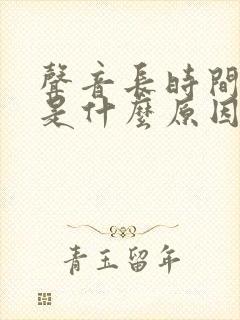 聲音長時間
是什麼原因
青玉留年